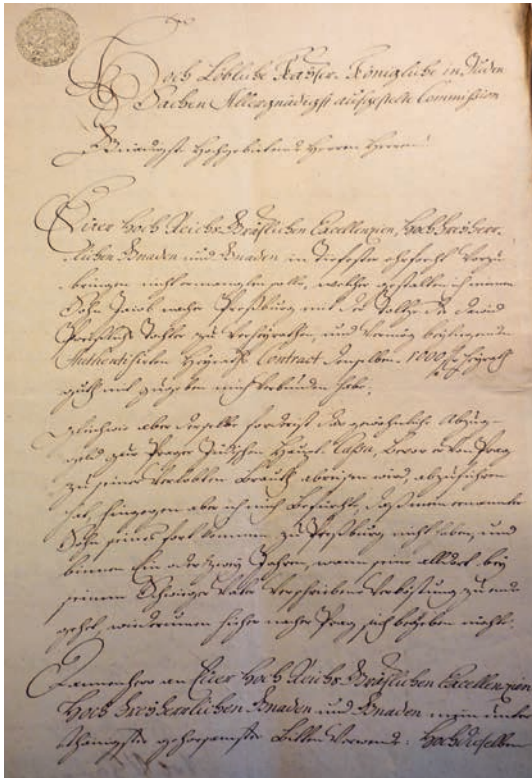 Hoch Löbliche Kayser: Königliche in Juden
Sachen Allergnädigst aufgestelte Commission
Gnädigst Hochgebietende Herren Herren
Euer Hoch Reichs Gräflichen Excellenzien, Hoch Freyherr-
lichen Gnaden und Gnaden in tiefester Ehrfurcht vorzu
bringen nicht ermanglen solle, welcher gestalten ich meinen
Sohn Jacob nacher Preßburg mit des David
Tochter zu verheyrathen, und vermög beyliegenden
Authentisirten Heyraths Contract demselben 1000 f Heyrath
guth mit zugeben mich verbunden habe.
Gleichwie aber derselbe das gewöhnliche Abzug-
geld zur Prager Jüdischen Haupt Cassa, bevor er von Prag
zu seiner verlobten Brauth abreisen wird, abzuführen
hat, hingegen aber ich mich befürchte, daß mein ernannter
Sohn seines fort kommen zu Preßburg nicht haben, und
binnen Ein oder zwey Jahren, wann seine alldort bey
seinem Schwiger Vater verschriebene Verköstung zu end
gehet, wiederumen hieher nacher Prag sich begeben möchte.
Dannenhero an Euer Hoch Reichs Gräflichen Excellenzien
Hoch Freyherrlichen Gnaden und Gnaden mein unter
thänigst gehorsamstes Bitten verwende: Hochdieselben